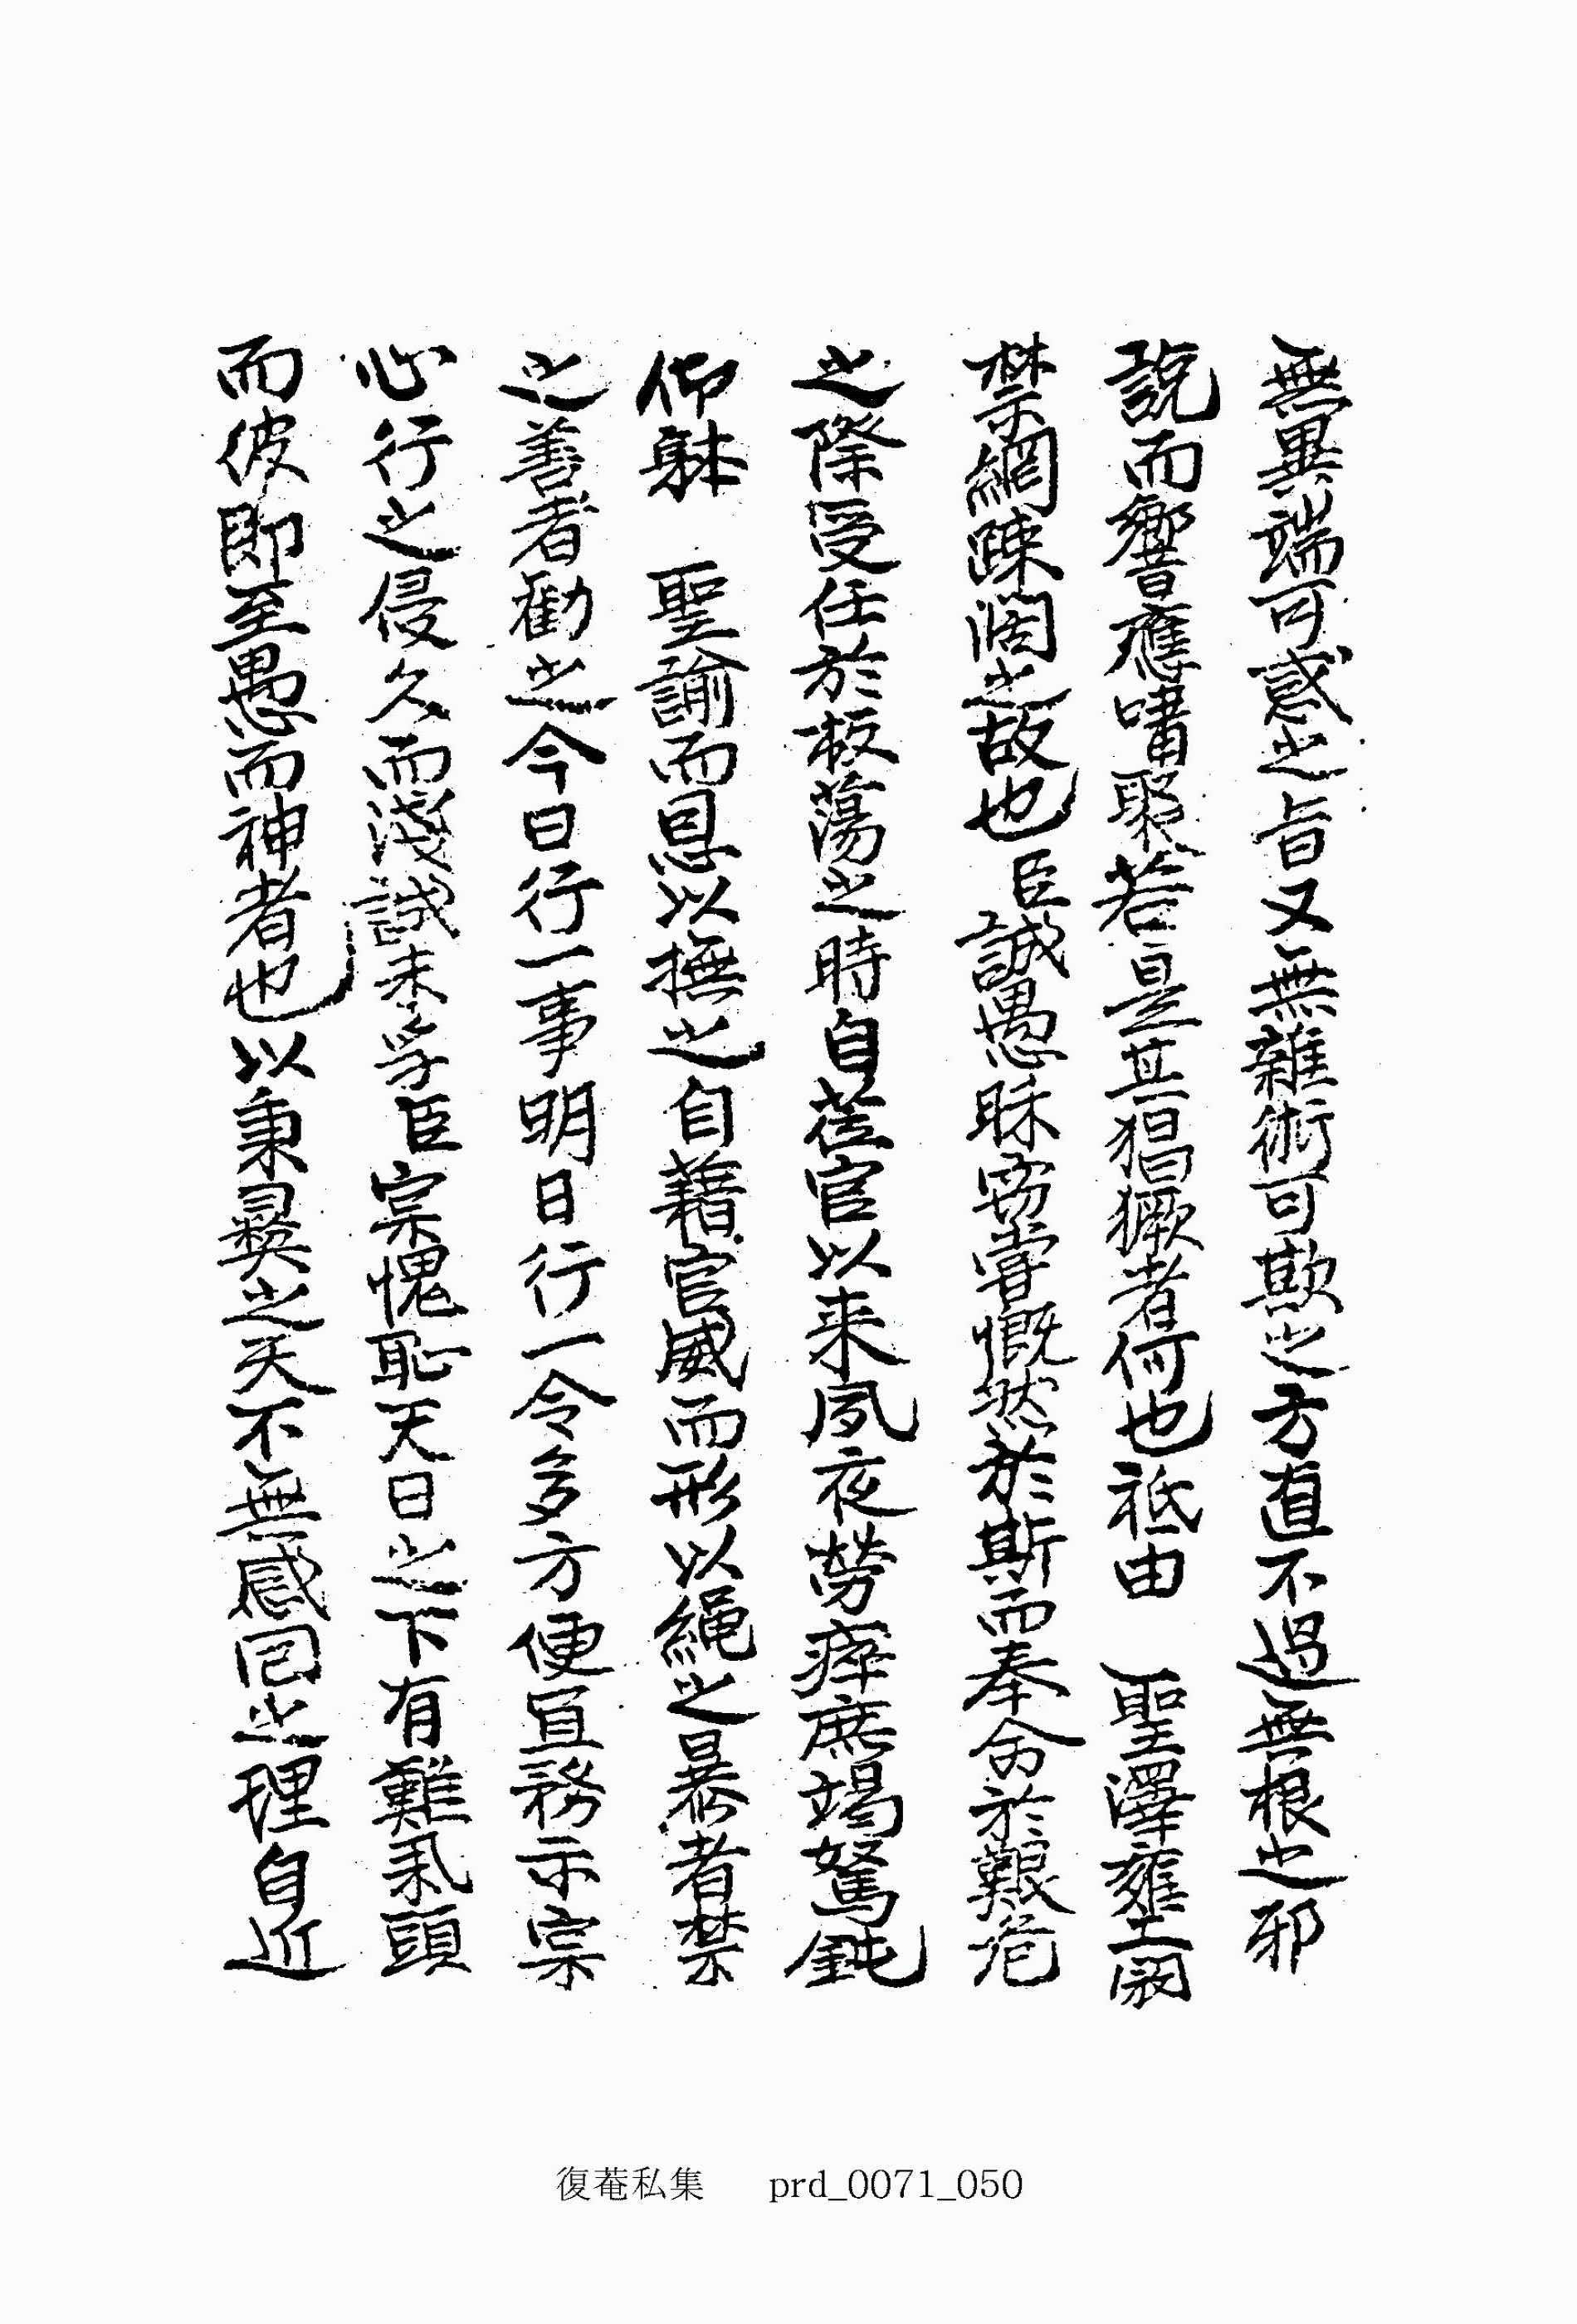 無異端可惑之旨又無雜術可欺之方直不過無根之邪
說而響應嘯聚若是其猖獗者何也祗由　聖澤壅閼
禁網踈濶之故也臣誠愚昧窃甞慨然於斯而奉命於艱危
之際受任於板蕩之時自莅官以来夙夜勞瘁庶竭駑鈍
仰躰　聖諭而恩以撫之自藉官威而形以繩之暴者禁
之善者勸之今日行一事明日行一令多方便宜務示宗
心行之侵久而淺誠未孚臣宲愧恥天日之下有難氣頭
而彼即至愚而神者也以秉彛之天不無感囘之理自近
復菴私集 prd_0071_050